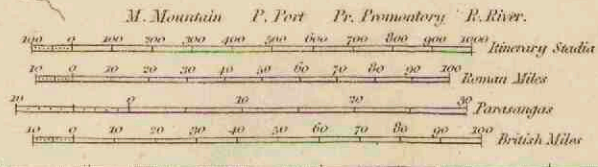 M. Mountain P. Port Pr. Promontory R. River.
100 0 100 200 300 400 500 600 700 800 900 1000 Itinerary Stadia
10 0 10 20 30 40 50 60 70 80 90 100 Roman Miles
10 0 10 20 30 Parasangas
10 0 10 20 30 40 50 60 70 80 90 100 British Miles